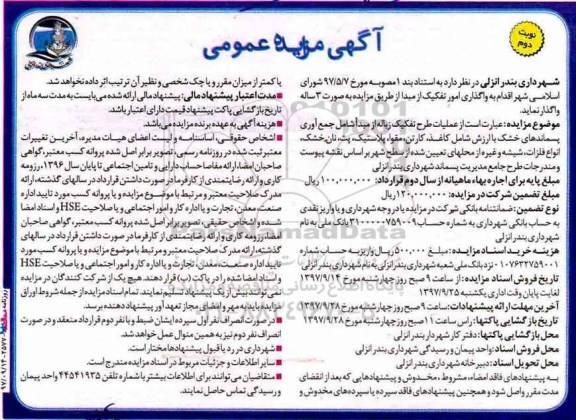 آگهی مزایده عمومی
نوبت دوم
شهرداری بندر انزلی در نظر دارد به استناد بند ۱ مصوبه مورخ ۹۷/۵/۷ شورای
اسلامی شهر اقدام به واگذاری امور تفکیک از مبدا از طریق مزایده به صورت ۳ ساله
واگذار نماید.
موضوع مزایده: عبارت است از عملیات طرح تفکیک زباله از مبدأ شامل جمع آوری
پسماندهای خشک با ارزش شامل کاغذ، کارتن، مقوا، پلاستیک، پت، نان خشک،
انواع فلزات، شیشه و غیره از محلهای تعیین شده از سطح شهر بر اساس نقشه پیوست
و مندرجات طرح جامع مدیریت پسماند شهرداری بندر انزلی
مبلغ پایه برای اجاره بهاء ماهیانه از سال دوم قرارداد: ۱۰۰,۰۰۰,۰۰۰ ریال
مبلغ تضمین شرکت در مزایده: ۱۲۰,۰۰۰,۰۰۰ ریال
نوع تضمین: ضمانتنامه بانکی شرکت در مزایده یا وجه نقد واریز
به حساب بانکی شهرداری به شماره حساب ۳۱۰۰۰۰۰۷۵۹۰۰۹ بانک ملی به نام
شهرداری بندر انزلی
هزینه خرید اسناد مزایده: مبلغ ۵۰۰,۰۰۰ ریال واریز به حساب شماره
۰۱۰۷۶۳۲۷۵۹۰۰۱ نزد بانک ملی شعبه شهرداری بندر انزلی به نام شهرداری بندر انزلی
تاریخ فروش اسناد مزایده: از ساعت ۹ صبح روز چهارشنبه مورخ ۱۳۹۷/۹/۱۴
لغایت پایان وقت اداری یکشنبه ۱۳۹۷/۹/۲۵
آخرین مهلت ارائه پیشنهادات: ساعت ۹ صبح روز چهارشنبه مورخ ۱۳۹۷/۹/۲۸
تاریخ بازگشایی پاکتها: راس ساعت ۱۱ صبح روز چهارشنبه مورخ ۱۳۹۷/۹/۲۸
محل بازگشایی پاکتها: دفتر کار شهردار بندر انزلی
محل فروش اسناد: واحد پیمان و رسیدگی شهرداری بندر انزلی
محل تحویل اسناد: دبیرخانه شهرداری بندر انزلی
به پیشنهادهای فاقد امضاء، مشروط، مخدوش و پیشنهادهایی که بعد از انقضای
مدت مقرر واصل شود و همچنین پیشنهادهای فاقد سپرده یا سپرده‌های مخدوش و
یا کمتر از میزان مقرر و یا چک شخصی و نظیر آن ترتیب اثر داده نخواهد شد.
مدت اعتبار پیشنهاد مالی: پیشنهاد مالی ارائه شده می‌بایست به مدت سه ماه از
تاریخ بازگشایی پاکت پیشنهاد قیمت دارای اعتبار باشد.
هزینه آگهی به عهده برنده مزایده می‌باشد.
اشخاص حقوقی، اساسنامه و لیست اعضای هیات مدیره، آخرین تغییرات
معتبر ثبت شده در روزنامه رسمی، تصویر برابر اصل شده پروانه کسب معتبر، گواهی
صاحبان امضاء، ارائه مفاصا حساب دارایی و تامین اجتماعی تا پایان سال ۱۳۹۶، رزومه
کاری و ارائه رضایتمندی از کارفرما در صورت داشتن قرارداد در سالهای گذشته، ارائه
مدرک صلاحیت معتبر و مرتبط با موضوع مزایده و یا پروانه کسب مورد تایید اداره
صنعت، معدن، تجارت و یا اداره کار و امور اجتماعی و یا صلاحیت HSE و اسناد امضا
شده و اشخاص حقیقی، برابر اصل شده پروانه کسب معتبر، گواهی صاحبان
امضا، رزومه کاری و ارائه رضایتمندی از کارفرما در صورت داشتن قرارداد در سالهای
گذشته، ارائه مدرک صلاحیت معتبر و مرتبط با موضوع مزایده و یا پروانه کسب مورد
تایید اداره صنعت، معدن، تجارت و یا اداره کار و امور اجتماعی و یا صلاحیت HSE
و اسناد امضا شده را در پاکت (ب) قرار دهند. هیچ یک از شرکت کنندگان در مزایده
نمی‌توانند بیش از یک پیشنهاد تسلیم نمایند. تمام اسناد مزایده از جمله شروط اوراق
مزایده باید به مهر و امضای مجاز تعهد آور پیشنهاد دهنده برسد.
در صورت انصراف نفر اول سپرده ایشان ضبط و با نفر دوم قرارداد منعقد و در صورت
انصراف نفر دوم نیز به همین منوال عمل خواهد شد.
شهرداری در رد یا قبول پیشنهادها مختار است.
سایر اطلاعات و جزئیات مربوط در اسناد مزایده مندرج است.
متقاضیان می‌توانند برای اطلاعات بیشتر با شماره تلفن ۴۴۵۴۱۹۳۵ واحد پیمان
و رسیدگی تماس حاصل نمایند.